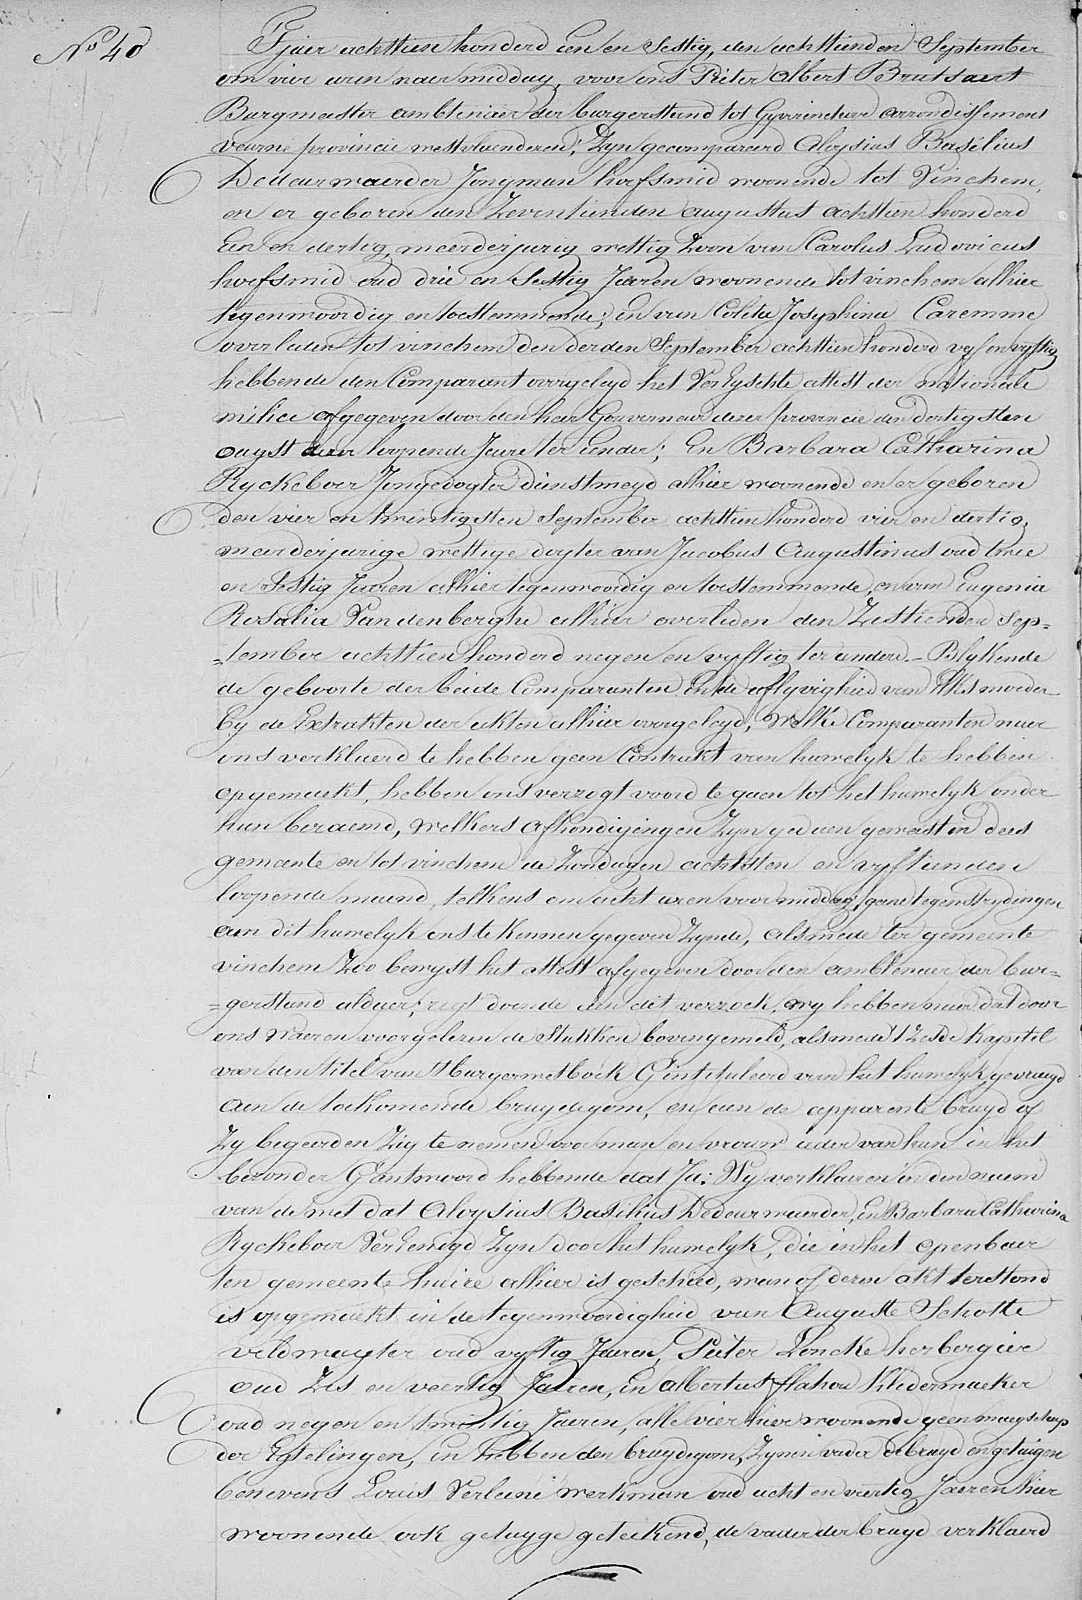 No 40
T'jaer achttien honderd een en Sestig, den achttienden September
om vier uren naer middag, voor ons Pieter Albert Brutsaert
Burgmeester ambtenaer der burgerstand tot Gyverinchove arrondissement
veurne provincie westvlaenderen; Zyn gecompareerd Aloysius Basilius
Dedeurwaerder Jongman hoefsmid woonende tot Vinchem,
en er geboren den Zeventienden augustus achttien honderd
Een en dertig, meerderjarig wettig Zoon van Carolus Ludovicus
hoefsmid oud drie en Sestig Jaeren woonende tot vinchem alhier
tegenwoordig en toestemmende; en van Coleta Josephina Caremme
overleden tot vinchem den derden September achttien honderd vyf en vyftig
hebbende den Comparant voorgelegd het Vereyschte attest der nationale
milice afgegeven door den heer Gouverneur dezer provincie den dertigsten
ougst dezer loopende Jaere ter Eender; En Barbara Catharina
Ryckeboer Jongedogter dienstmeyd alhier woonende en er geboren
den vier en twintigsten September achttien honderd vier en dertig,
meerderjarige wettige dogter van Jacobus Augustinus oud twee
en Sestig Jaeren alhier tegenwoordig en toestemmende, en van Eugenia
Rosalia Vandenberghe alhier overleden den Zestienden Sep=
=tember achttien honderd negen en vyftig ter andere.- Blykende
de geboorte der beide Comparanten en de aflyvigheid van elks moeder
by de Extrakten der akten alhier voorgelegd; Welke Comparanten naer
ons verklaerd te hebben geen Contrakt van huwelyk te hebben
opgemaekt, hebben ons verzogt voord te gaen tot het huwelyk onder
hun beraemd, welkers afkondigingen Zyn gedaen geweest in dees
gemeente en tot vinchem de Zondagen achtsten en vyftienden
loopende maend, telkens om acht uren voor middag, geene tegenstrydingen
aen dit huwelyk ons te kennen gegeven Zynde, alsmede ter gemeente
vinchem Zoo bewyst het attest afgegeven door den ambtenaer der bur=
=gerstand aldaer; regt doende aen dit verzoek, wy hebben naer dat door
ons waeren voorgelezen de Stukken bovengemeld, alsmede 't Zesde kapitel
van den titel van 't burgerwetboek G'intituleerd van het huwelyk, gevraegd
aen de toekomende bruydegom, en aen de apparente bruyd of
Zy begeerden Zig te nemen voor man en vrouw ieder van hun in het
bezonder G'antwoord hebbende dat Ja: Wy verklaeren in den naem
van de wet dat Aloysius Basilius Dedeurwaerder, en Barbara Catharina
Ryckeboer Vereenigd Zyn door het huwelyk, die in het openbaer
ten gemeente huize alhier is geschied, waer of deze akt terstond
is opgemaekt in de tegenwoordigheid van Auguste Schotte
veldwagter oud vyftig Jaeren, Pieter Loncke herbergier
oud Zes en veertig Jaeren, en Albertus flahou kledermaeker
oud negen en twintig Jaeren, alle vier hier woonende geen maegschap
der Egtelingen, en hebben den bruydegom, Zynen vader de bruyd en getuigen
benevens Louis Verleine werkman oud acht en veertig Jaeren hier
woonende ook getuyge geteekend, de vader der bruyd verklaerd